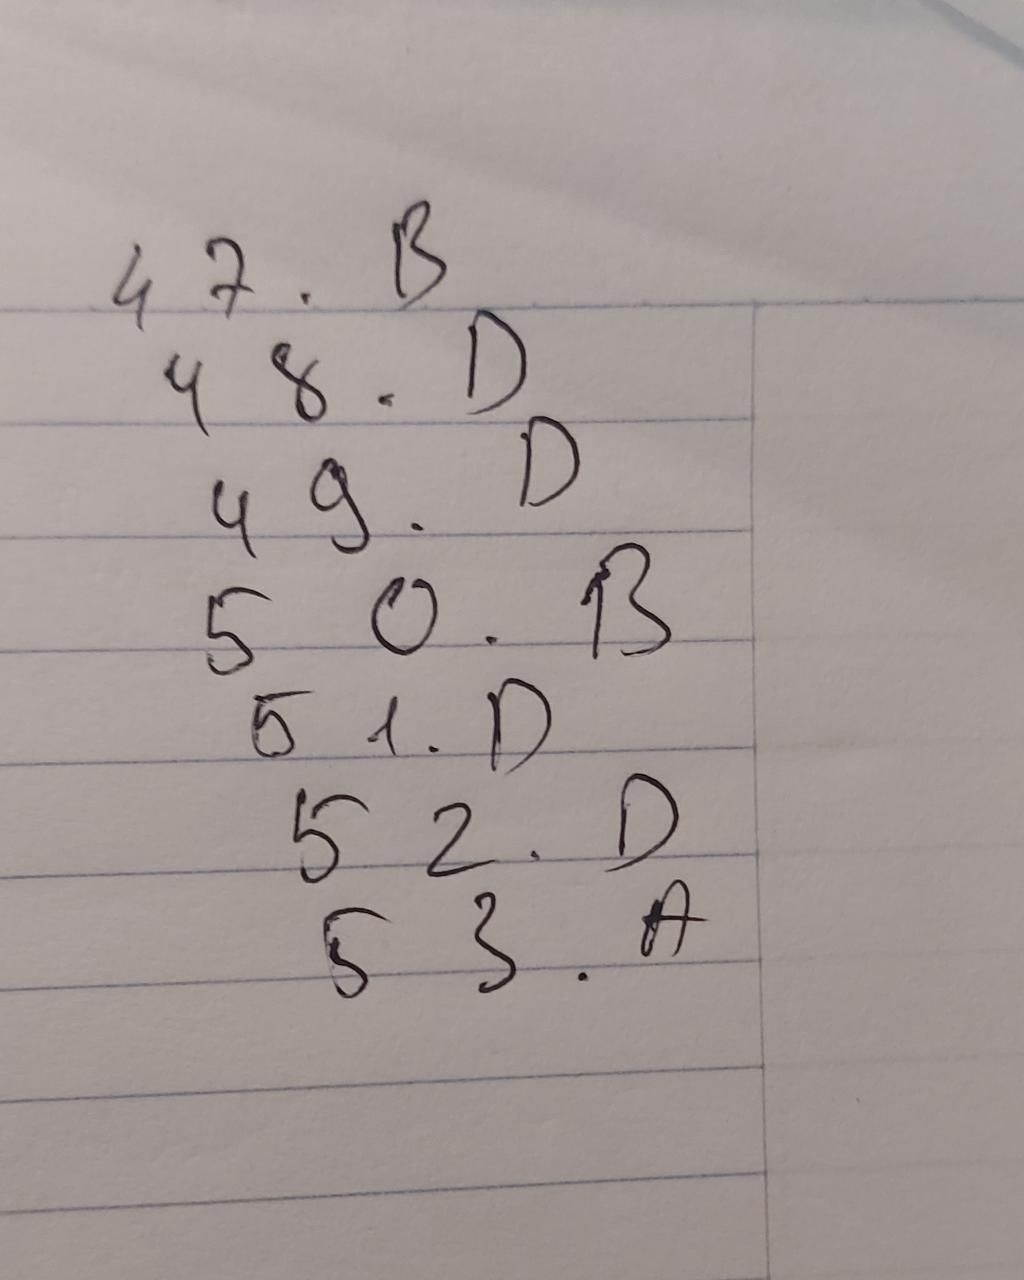 47. B
48. D
49. D
50. B
51. D
52. D
53. A